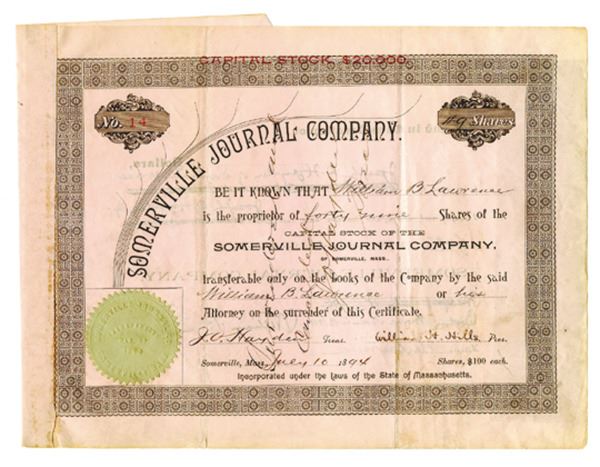 CAPITAL STOCK, $20,000.
No. 14
49 Shares.
SOMERVILLE JOURNAL COMPANY.
BE IT KNOWN THAT William B Lawrence
is the proprietor of forty nine Shares of the
CAPITAL STOCK OF THE
SOMERVILLE JOURNAL COMPANY,
OF SOMERVILLE, MASS.,
transferable only on the books of the Company by the said
William B. Lawrence or his
Attorney on the surrender of this Certificate.
Treas. William H. Hills Pres.
Somerville, Mass. July 10 1894 Shares, $100 each.
Incorporated under the laws of the State of Massachusetts.